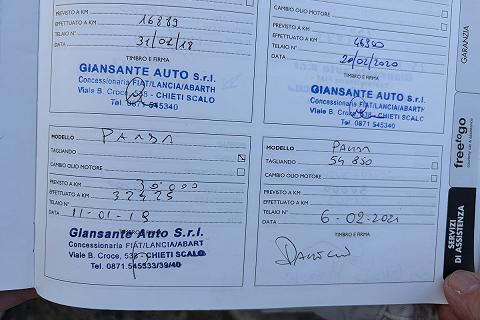 PREVISTO A KM
EFFETTUATO A KM 16883
TELAIO N°
DATA 31/02/18
TIMBRO E FIRMA
GIANSANTE AUTO S.r.l.
Concessionaria FIAT/LANCIA/ABARTH
Viale B. Croce, 538 - CHIETI SCALO
Tel. 0871 545340
CAMBIO OLIO MOTORE
PREVISTO A KM
EFFETTUATO A KM
TELAIO N°
DATA 20/02/2020
TIMBRO E FIRMA
GIANSANTE AUTO S.r.l.
Concessionaria FIAT/LANCIA/ABARTH
Viale B. Croce, 538 - CHIETI SCALO
Tel. 0871 545340
MODELLO PANDA
TAGLIANDO
CAMBIO OLIO MOTORE
PREVISTO A KM 30.000
EFFETTUATO A KM 32425
TELAIO N°
DATA 11-01-19
TIMBRO E FIRMA
Giansante Auto S.r.l.
Concessionaria FIAT/LANCIA/ABART
Viale B. Croce, 538 - CHIETI SCALO
Tel. 0871.545333/39/40
MODELLO PANDA
TAGLIANDO 54850
CAMBIO OLIO MOTORE
PREVISTO A KM
EFFETTUATO A KM
TELAIO N°
DATA 6-02-2021
TIMBRO E FIRMA
GARANZIA
freetogo
SERVIZI
DI ASSISTENZA